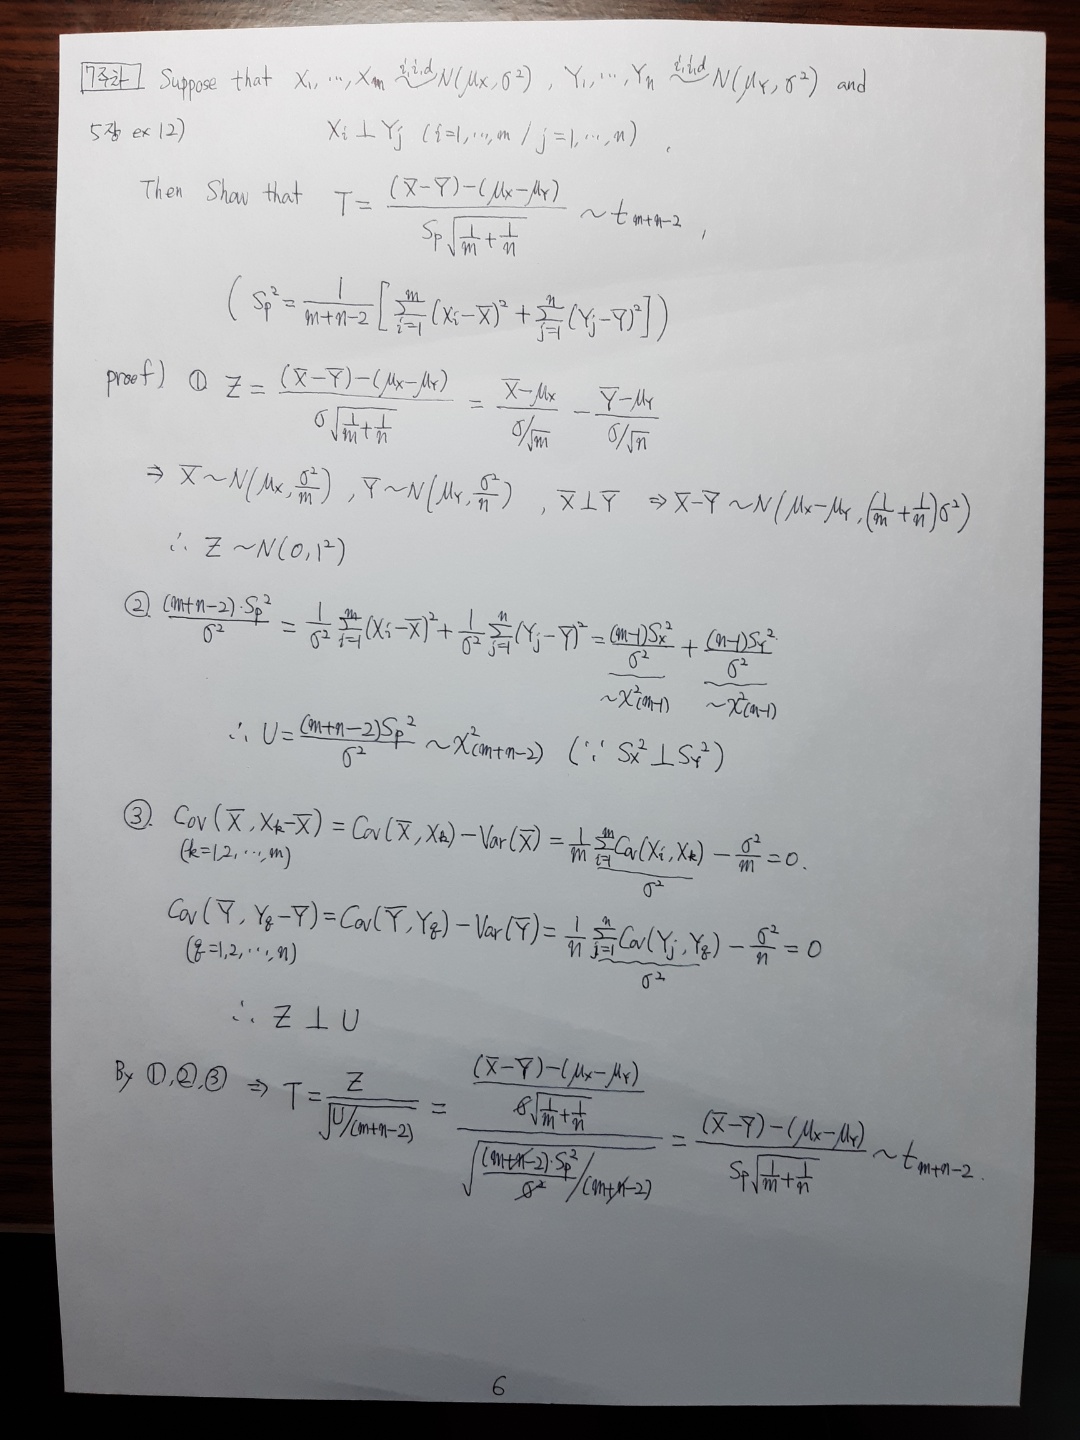 7주차 Suppose that X₁, ..., Xₘ i.i.d ~ N(μ_X, σ²), Y₁, ..., Yₙ i.i.d ~ N(μ_Y, σ²) and
5장 ex 12) Xᵢ ⊥ Yⱼ (i=1, ..., m / j=1, ..., n),
Then Show that T = ((X̄-Ȳ)-(μ_X-μ_Y)) / (S_p √(1/m + 1/n)) ~ t_{m+n-2},
( S_p² = 1/(m+n-2) [ Σ_{i=1}^{m} (Xᵢ-X̄)² + Σ_{j=1}^{n} (Yⱼ-Ȳ)² ] )
proof) ① Z = ((X̄-Ȳ)-(μ_X-μ_Y)) / (σ √(1/m + 1/n)) = (X̄-μ_X)/(σ/√m) - (Ȳ-μ_Y)/(σ/√n)
⇒ X̄ ~ N(μ_X, σ²/m), Ȳ ~ N(μ_Y, σ²/n), X̄ ⊥ Ȳ ⇒ X̄-Ȳ ~ N(μ_X-μ_Y, (1/m + 1/n)σ²)
∴ Z ~ N(0, 1²)
② (m+n-2)·S_p² / σ² = 1/σ² Σ_{i=1}^{m} (Xᵢ-X̄)² + 1/σ² Σ_{j=1}^{n} (Yⱼ-Ȳ)² = (m-1)S_X²/σ² + (n-1)S_Y²/σ²
~χ²(m-1) ~χ²(n-1)
∴ U = (m+n-2)S_p² / σ² ~ χ²(m+n-2) (∵ S_X² ⊥ S_Y²)
③. Cov(X̄, X_k-X̄) = Cov(X̄, X_k) - Var(X̄) = 1/m Σ_{i=1}^{m} Cov(Xᵢ, X_k) - σ²/m = 0.
(k=1,2, ..., m) σ²
Cov(Ȳ, Y_q-Ȳ) = Cov(Ȳ, Y_q) - Var(Ȳ) = 1/n Σ_{j=1}^{n} Cov(Yⱼ, Y_q) - σ²/n = 0
(q=1,2, ..., n) σ²
∴ Z ⊥ U
By ①,②,③ ⇒ T = Z / √(U/(m+n-2)) = [((X̄-Ȳ)-(μ_X-μ_Y)) / (σ √(1/m + 1/n))] / √((m+n-2)·S_p²/σ² / (m+n-2)) = ((X̄-Ȳ)-(μ_X-μ_Y)) / (S_p √(1/m + 1/n)) ~ t_{m+n-2}.
6